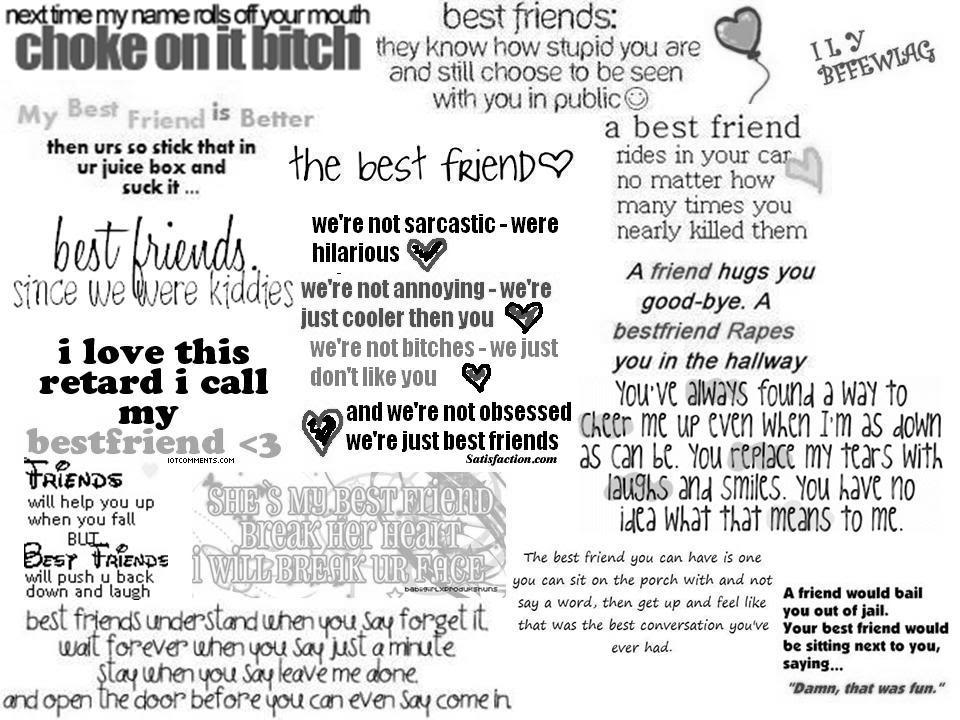 next time my name rolls off your mouth
choke on it bitch
best friends:
they know how stupid you are
and still choose to be seen
with you in public☺
I L Y
BFFEWIAG
My Best Friend is Better
then urs so stick that in
ur juice box and
suck it ...
the best friend♡
a best friend
rides in your car
no matter how
many times you
nearly killed them
best friends.
since we were kiddies
we're not sarcastic - were
hilarious
we're not annoying - we're
just cooler then you
we're not bitches - we just
don't like you
and we're not obsessed
we're just best friends
Satisfaction.com
A friend hugs you
good-bye. A
bestfriend Rapes
you in the hallway
i love this
retard i call
my
bestfriend <3
IOTCOMMENTS.COM
You've always found a way to
cheer me up even when I'm as down
as can be. You replace my tears with
laughs and smiles. You have no
idea what that means to me.
Friends
will help you up
when you fall
BUT...
Best Friends
will push u back
down and laugh
She`s my best friend
Break her heart
I will break ur face
babigirlxprodukshuns
The best friend you can have is one
you can sit on the porch with and not
say a word, then get up and feel like
that was the best conversation you've
ever had.
A friend would bail
you out of jail.
Your best friend would
be sitting next to you,
saying...
"Damn, that was fun."
best friends understand when you say forget it.
wait forever when you say just a minute
stay when you say leave me alone.
and open the door before you can even say come in.